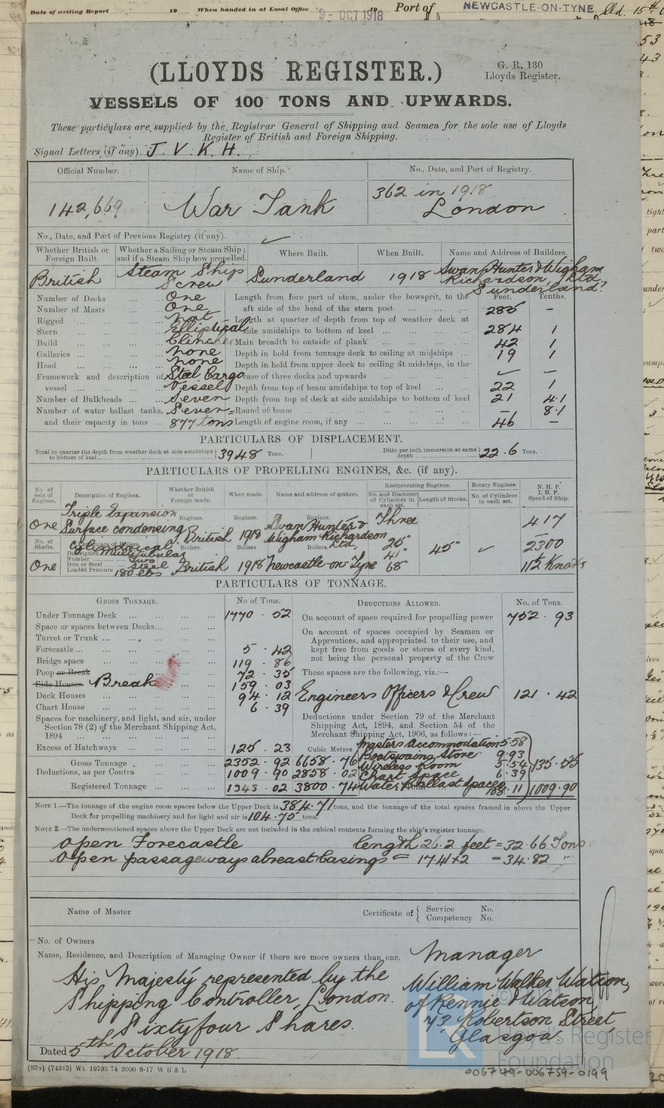 Date of writing Report 19 When handed in at Local Office 9-OCT 1918 19 Port of NEWCASTLE-ON-TYNE
(LLOYDS REGISTER.)
G. R. 130
Lloyds Register.
VESSELS OF 100 TONS AND UPWARDS.
These particulars are supplied by the Registrar General of Shipping and Seamen for the sole use of Lloyds
Register of British and Foreign Shipping.
Signal Letters (if any). J. V. K. H.
Official Number. Name of Ship. No., Date, and Port of Registry.
142,669 War Tank 362 in 1918
London
No., Date, and Port of Previous Registry (if any).
Whether British or Foreign Built. Whether a Sailing or Steam Ship; and if a Steam Ship how propelled. Where Built. When Built. Name and Address of Builders.
British Steam Ship Screw Sunderland 1918 Swan Hunter & Wigham Richardson Ltd Sunderland
Feet. Tenths.
Number of Decks One Length from fore part of stem, under the bowsprit, to the
Number of Masts One aft side of the head of the stern post 285 –
Rigged Depth at quarter of depth from top of weather deck at
Stern Elliptical side amidships to bottom of keel 284 1
Build Clincher Main breadth to outside of plank 42 1
Galleries none Depth in hold from tonnage deck to ceiling at midships 19 1
Head none Depth in hold from upper deck to ceiling at midships, in the
Framework and description of Steel Cargo case of three decks and upwards – –
vessel Vessel Depth from top of beam amidships to top of keel 22 1
Number of Bulkheads Seven Depth from top of deck at side amidships to bottom of keel 21 41
Number of water ballast tanks, Seven= Round of beam – 81
and their capacity in tons 877 tons Length of engine room, if any 46 –
PARTICULARS OF DISPLACEMENT.
Total to quarter the depth from weather deck at side amidships to bottom of keel 3948 Tons. Ditto per inch immersion at same depth 22.6 Tons.
PARTICULARS OF PROPELLING ENGINES, &c. (if any).
No. of sets of Engines. Description of Engines. Whether British or Foreign made. When made. Name and address of makers. Reciprocating Engines. No. and Diameter of Cylinders in each set. Length of Stroke. Rotary Engines. No. of Cylinders in each set. N.H.P. I.H.P. Speed of Ship.
One Triple Expansion Surface condensing British 1918 Swan Hunter & Wigham Richardson Ltd Three 45" 417
25" 41" 68" 2300
One Iron or Steel Steel Loaded Pressure 180 lbs British 1918 Newcastle-on-Tyne 11½ Knots
PARTICULARS OF TONNAGE.
GROSS TONNAGE. No of Tons. DEDUCTIONS ALLOWED. No. of Tons.
Under Tonnage Deck 1770 . 52 On account of space required for propelling power 752 . 93
Space or spaces between Decks On account of spaces occupied by Seamen or
Turret or Trunk Apprentices, and appropriated to their use, and
Forecastle 5 . 42 kept free from goods or stores of every kind,
Bridge space 119 . 86 not being the personal property of the Crew
Poop or Break 72 . 35 These spaces are the following, viz.:—
Side Houses Break 159 . 03
Deck Houses 94 . 12 Engineers Officers & Crew 121 . 42
Chart House 6 . 39 Deductions under Section 79 of the Merchant
Spaces for machinery, and light, and air, under Shipping Act, 1894, and Section 54 of the
Section 78 (2) of the Merchant Shipping Act, Merchant Shipping Act, 1906, as follows:—
1894 Masters Accommodation 5.58
Excess of Hatchways 125 . 23 Cubic Metres Boatswains Store 9.93
Gross Tonnage 2352 . 92 6658 . 76 Wireless Room 5.54 135.55
Deductions, as per Contra 1009 . 90 2858 . 02 Chart Space 6.39
Registered Tonnage 1343 . 02 3800 . 74 Water Ballast Space 1009.90
NOTE 1.—The tonnage of the engine room spaces below the Upper Deck is 384.71 tons, and the tonnage of the total spaces framed in above the Upper
Deck for propelling machinery and for light and air is 104.75 tons.
NOTE 2.—The undermentioned spaces above the Upper Deck are not included in the cubical contents forming the ship's register tonnage.
Open Forecastle length 26.2 feet = 32.66 Tons
Open passageways abreast casings = 17.41 x 2 = 34.82 "
Name of Master Certificate of { Service No.
Competency No.
No. of Owners
Name, Residence, and Description of Managing Owner if there are more owners than one. Manager
His Majesty represented by the William Walker Watson,
Shipping Controller, London. of Rennie & Watson,
Sixtyfour Shares. 43 Robertson Street
Glasgow
Dated 5th October 1918.
(835) (74343) Wt. 19793/74 2000 8-17 W B & L
Lloyd's Register
Foundation
006749-006759-0199